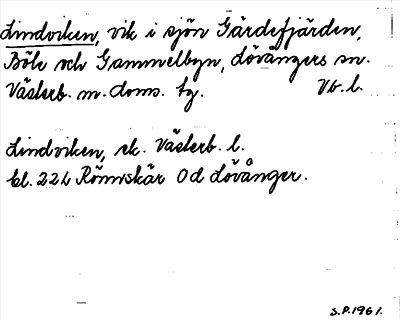 Lindviken, vik i sjön Gärdefjärden,
Böle och Gammelbyn, Lövångers sn.
Västerb. m. doms. tg. Vb. l.
Lindviken, ek. Västerb. l.
bl. 22L Rönnskär Od Lövånger.
S.P. 1961.